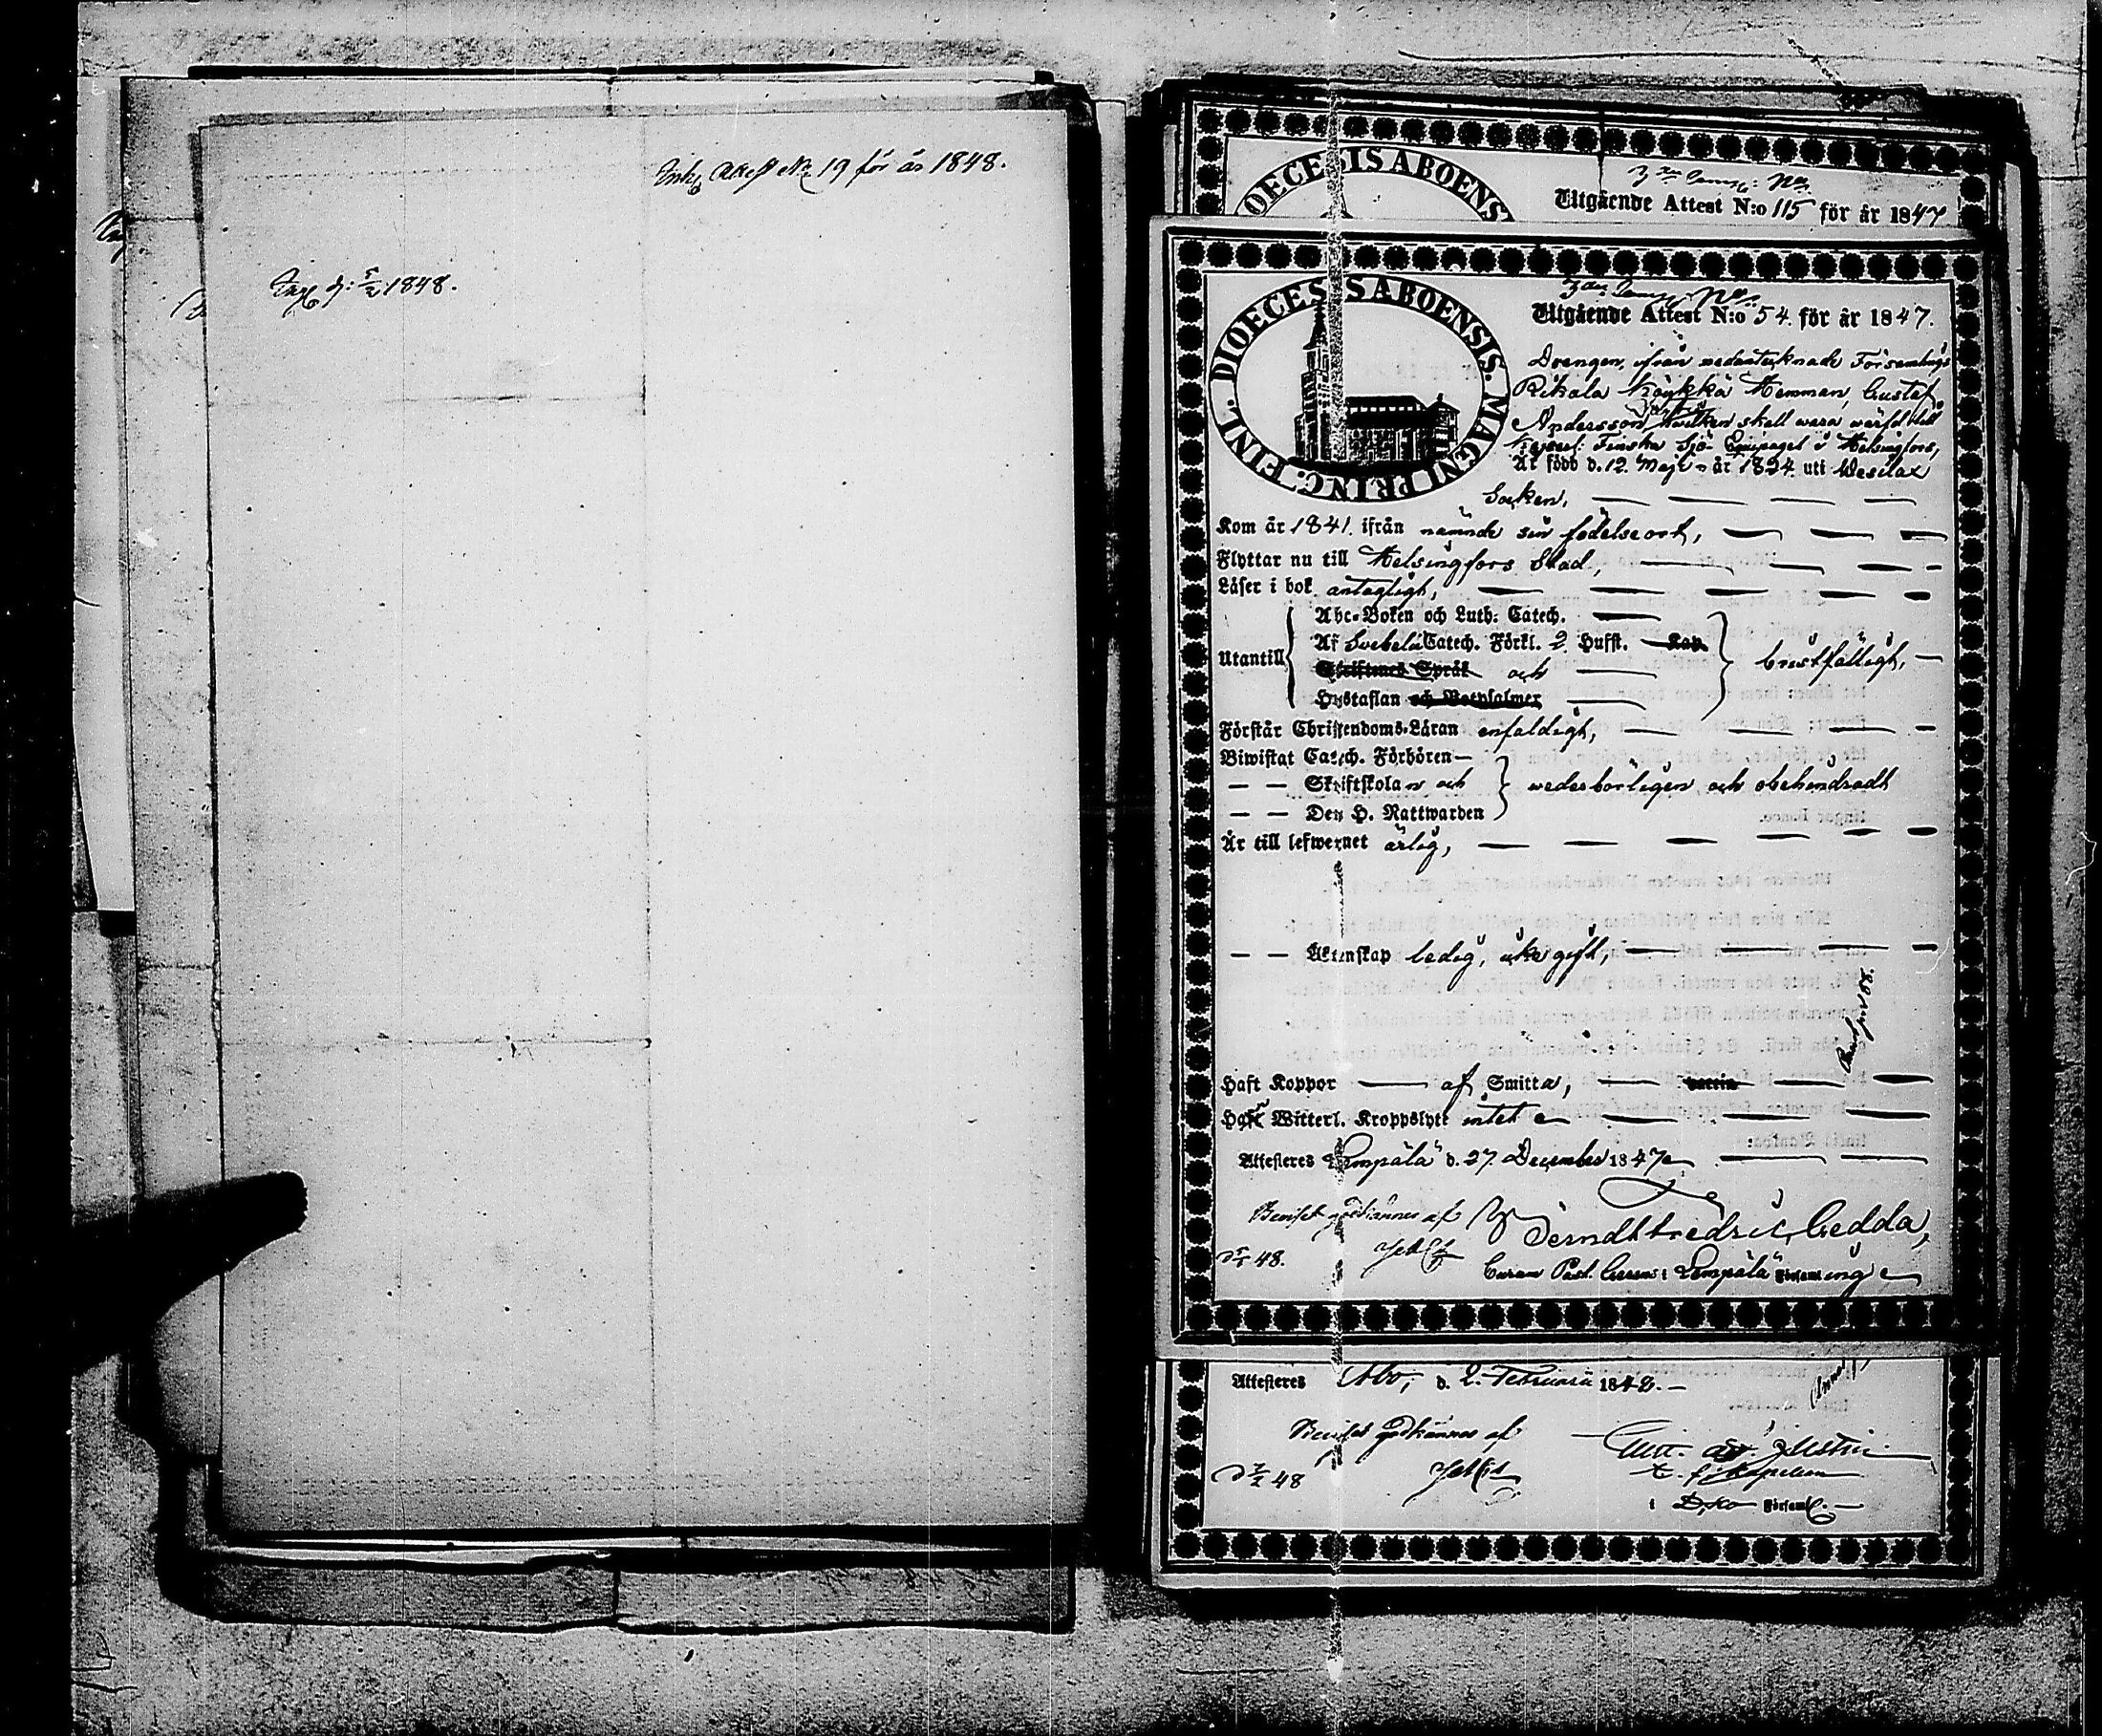 Ink. Attest No 19 för år 1848.
Ing. d: 5/2 1848.
DIOECESIS ABOENS
Utgående Attest N:o 115 för år 1847
DIOECESIS ABOENSIS. MAGNI PRINC. FINL.
Utgående Attest N:o 54. för år 1847.
Drengen, ifrån nedantecknade Församlings
Rikala Köykkä Hemman, Gustaf
Andersson, hvilken skall wara wärfd till
Kejserl: Finska Sjö Equipaget i Helsingfors,
Är född d. 12. Maji år 1824. uti Wesilax
Socken,
Kom år 1841. ifrån nämnde sin födelseort,
Flyttar nu till Helsingfors Stad,
Läser i bok antagligt,
Utantill
Abc-Boken och Luth: Catech.
Af Svebelii Catech. Förkl. 2 Hufst. Kap.
Skriftenes Språk och
Hustaflan och Botpsalmer
bristfälligt,
Förstår Christendoms-Läran enfaldigt,
Biwistat Catech. Förhören
— — Skriftskolan och
— — Den H. Nattwarden
wederbörligen och obehindradt
Är till lefwernet ärlig,
— — Äktenskap ledig, icke gift,
Haft Koppor — af Smitta, — vaccin
Haft Witterl. Kroppslyte intet
Attesteras Lempälä d. 27. December 1847
Beviset godkännes af
Berndt Fredric Gedda,
48.
Curam Past. Gerens i Lempälä Församling
Attesteras Åbo, d. 2. Februarii 1848.
Beviset godkännes af
48
i Församl.